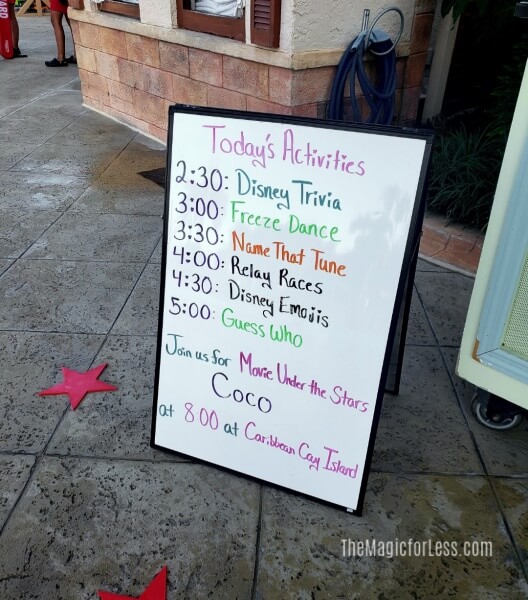 Today's Activities
2:30: Disney Trivia
3:00: Freeze Dance
3:30: Name That Tune
4:00: Relay Races
4:30: Disney Emojis
5:00: Guess Who
Join us for Movie Under the Stars
Coco
at 8:00 at Caribbean Cay Island
TheMagicforLess.com